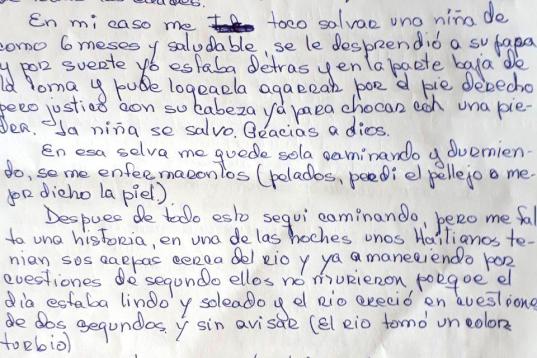 En mi caso me toco salvar una niña de
como 6 meses y saludable, se le desprendió a su papa
y por suerte yo estaba detras y en la parte baja de
la loma y pude lograrla agarrar por el pie derecho
pero justico con su cabeza ya para chocar con una pie-
dra. La niña se salvo. Gracias a dios.
En esa selva me quede sola caminando y durmien-
do, se me enfermaron los (pelados, perdi el pellejo o me-
jor dicho la piel).
Despues de todo esto segui caminando, pero me fal
ta una historia, en una de las noches unos Haitianos te-
nian sos carpas cerca del rio y ya amaneciendo por
cuestiones de segundo ellos no murieron porque el
dia estaba lindo y soleado y el rio creció en cuestione
de dos segundos y sin avisar (El rio tomó un color
turbio)